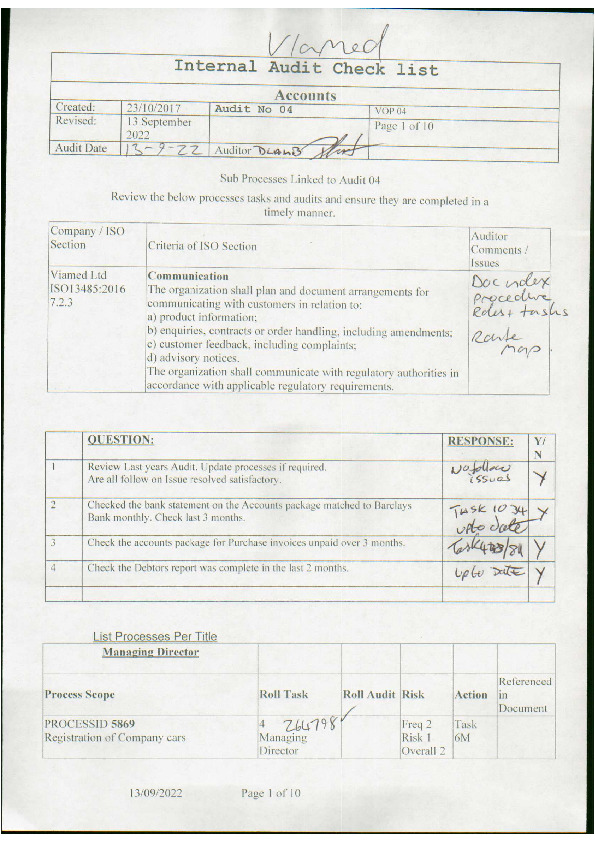 Viamed
Internal Audit Check list
Accounts
Created: 23/10/2017 Audit No 04 VOP 04
Revised: 13 September 2022 Page 1 of 10
Audit Date 13-9-22 Auditor DLAMB
Sub Processes Linked to Audit 04
Review the below processes tasks and audits and ensure they are completed in a
timely manner.
Company / ISO Section Criteria of ISO Section Auditor Comments / Issues
Viamed Ltd
ISO13485:2016
7.2.3
Communication
The organization shall plan and document arrangements for
communicating with customers in relation to:
a) product information;
b) enquiries, contracts or order handling, including amendments;
c) customer feedback, including complaints;
d) advisory notices.
The organization shall communicate with regulatory authorities in
accordance with applicable regulatory requirements.
Doc index
procedure
Roles + tasks
Route
Map.
QUESTION: RESPONSE: Y/N
1 Review Last years Audit. Update processes if required.
Are all follow on Issue resolved satisfactory.
No follow
issues Y
2 Checked the bank statement on the Accounts package matched to Barclays
Bank monthly. Check last 3 months.
TASK 1034
upto date Y
3 Check the accounts package for Purchase invoices unpaid over 3 months. Y
4 Check the Debtors report was complete in the last 2 months. upto date Y
List Processes Per Title
Managing Director
Process Scope Roll Task Roll Audit Risk Action Referenced in Document
PROCESSID 5869
Registration of Company cars
4 264798 ✓
Managing
Director
Freq 2
Risk 1
Overall 2
Task
6M
13/09/2022 Page 1 of 10